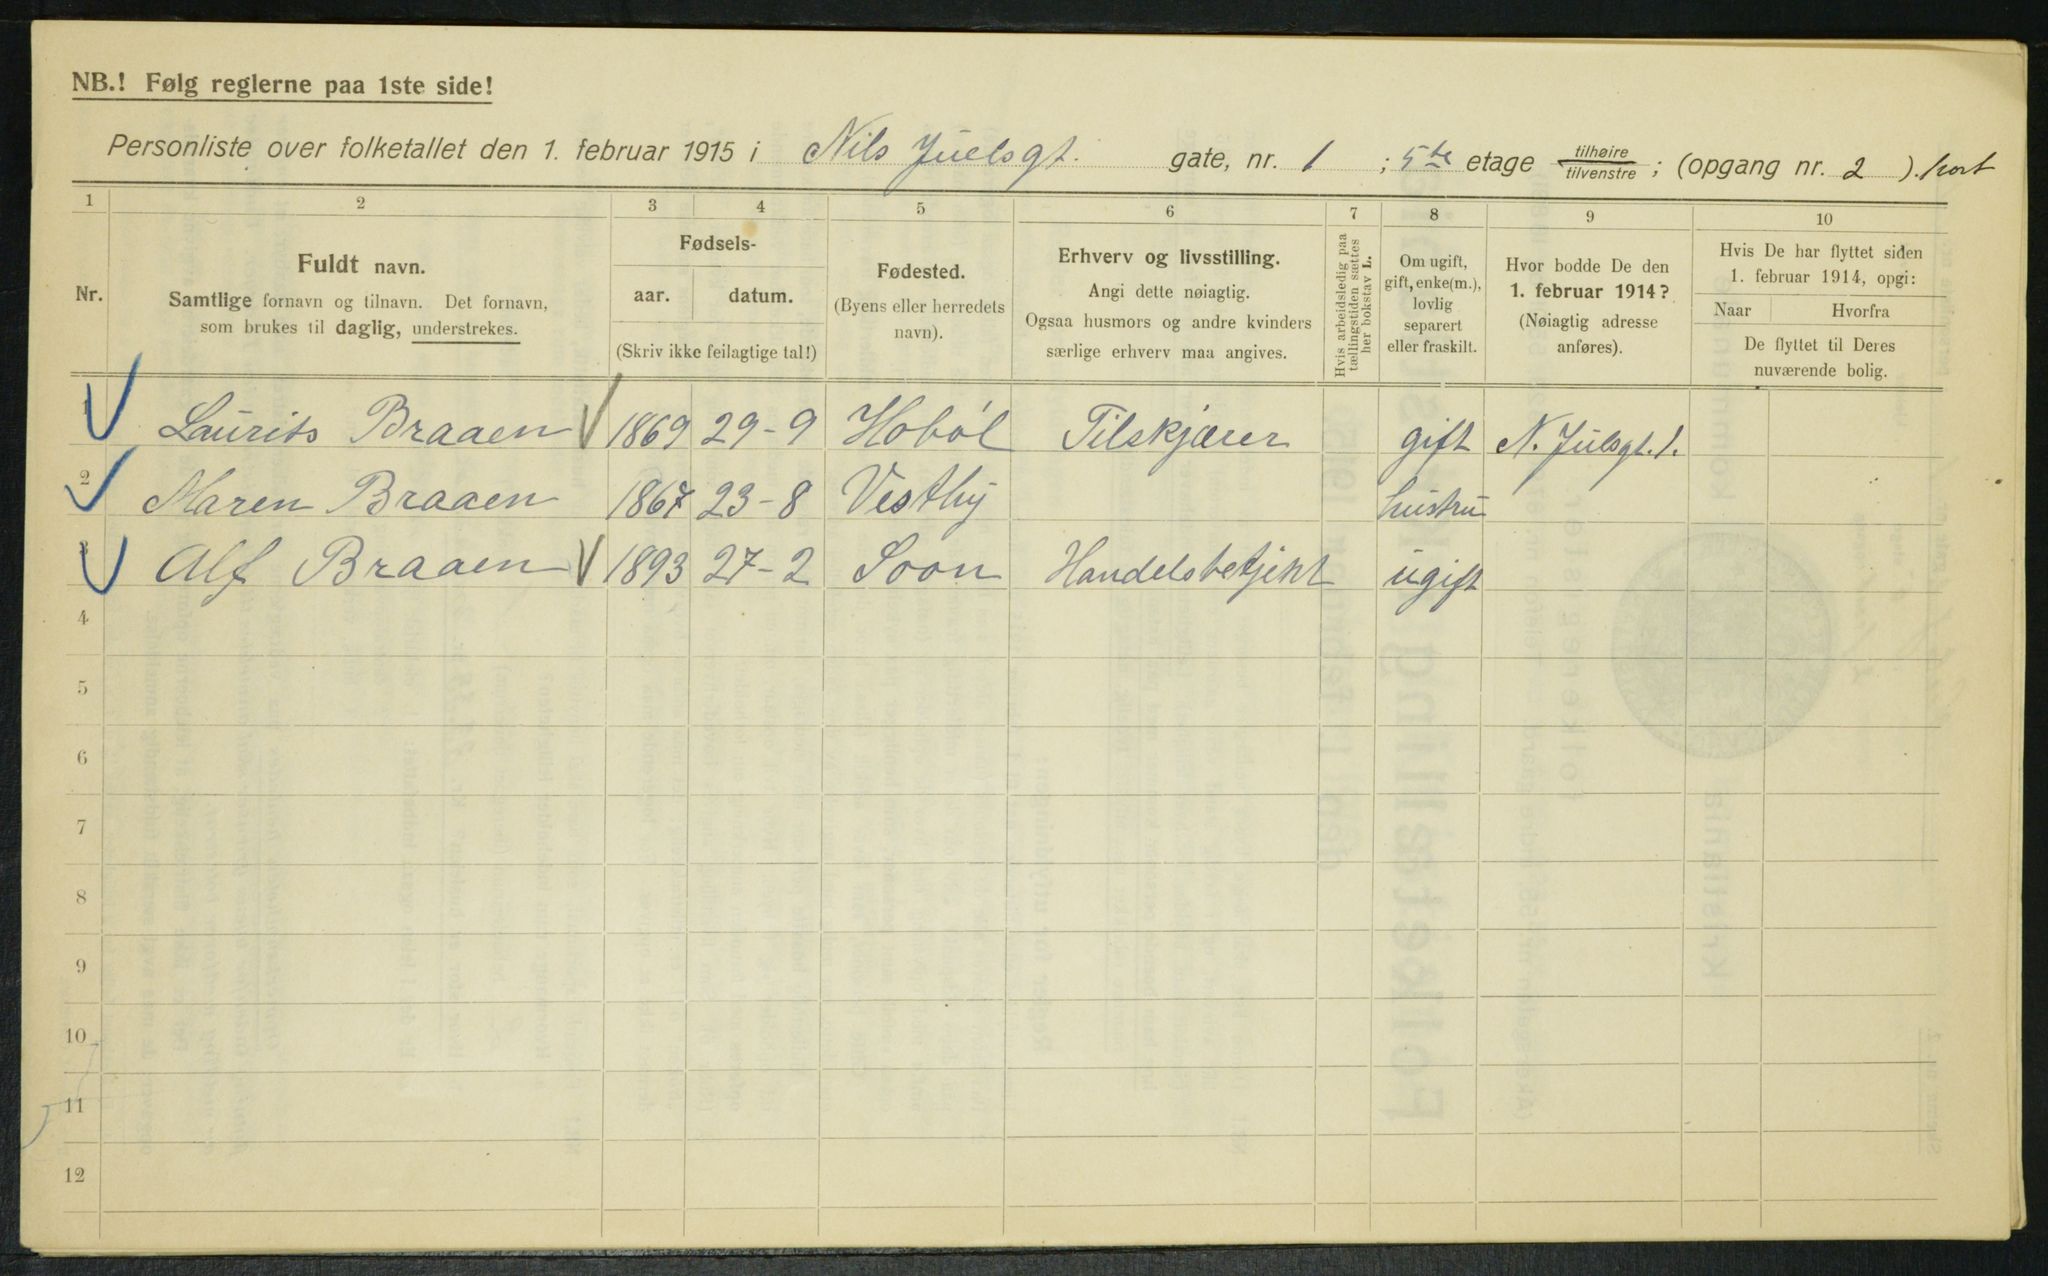 NB.! Følg reglerne paa 1ste side!
Personliste over folketallet den 1. februar 1915 i Nils Juelsgt. gate, nr. 1 ; 5te etage tilhøire/tilvenstre ; (opgang nr. 2 ). kort
1 2 3 4 5 6 7 8 9 10
Nr.
Fuldt navn.
Samtlige fornavn og tilnavn. Det fornavn,
som brukes til daglig, understrekes.
Fødsels-
aar. datum.
(Skriv ikke feilagtige tal!)
Fødested.
(Byens eller herredets
navn).
Erhverv og livsstilling.
Angi dette nøiagtig.
Ogsaa husmors og andre kvinders
særlige erhverv maa angives.
Hvis arbeidsledig paa
tællingstiden sættes
her bokstav L.
Om ugift,
gift, enke(m.),
lovlig
separert
eller fraskilt.
Hvor bodde De den
1. februar 1914?
(Nøiagtig adresse
anføres).
Hvis De har flyttet siden
1. februar 1914, opgi:
Naar Hvorfra
De flyttet til Deres
nuværende bolig.
1 Laurits Braaen 1869 29-9 Hobøl Tilskjærer gift N. Julsgt. 1.
2 Maren Braaen 1867 23-8 Vestby hustru
3 Alf Braaen 1893 27-2 Soon Handelsbetjent ugift
4
5
6
7
8
9
10
11
12